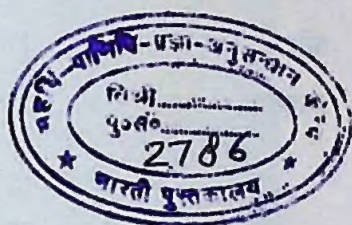 महर्षि-पाणिनि-प्रज्ञा-अनुसन्धान
तिथी..............
पु०सं०..............
2786
★ भारती पुस्तकालय ★